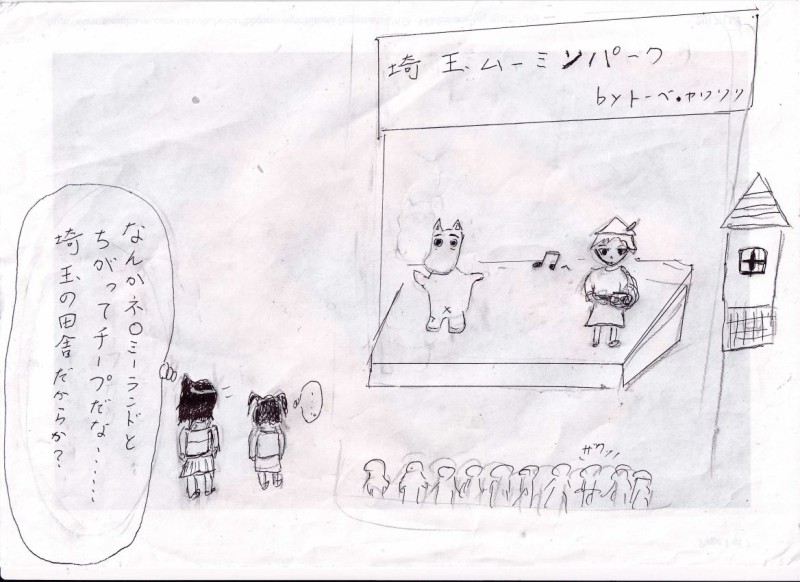 埼玉ムーミンパーク
byトーベ・
なんかネ〇ミーランドと
ちがってチープだな……
埼玉の田舎だからか?
…
ザワッ